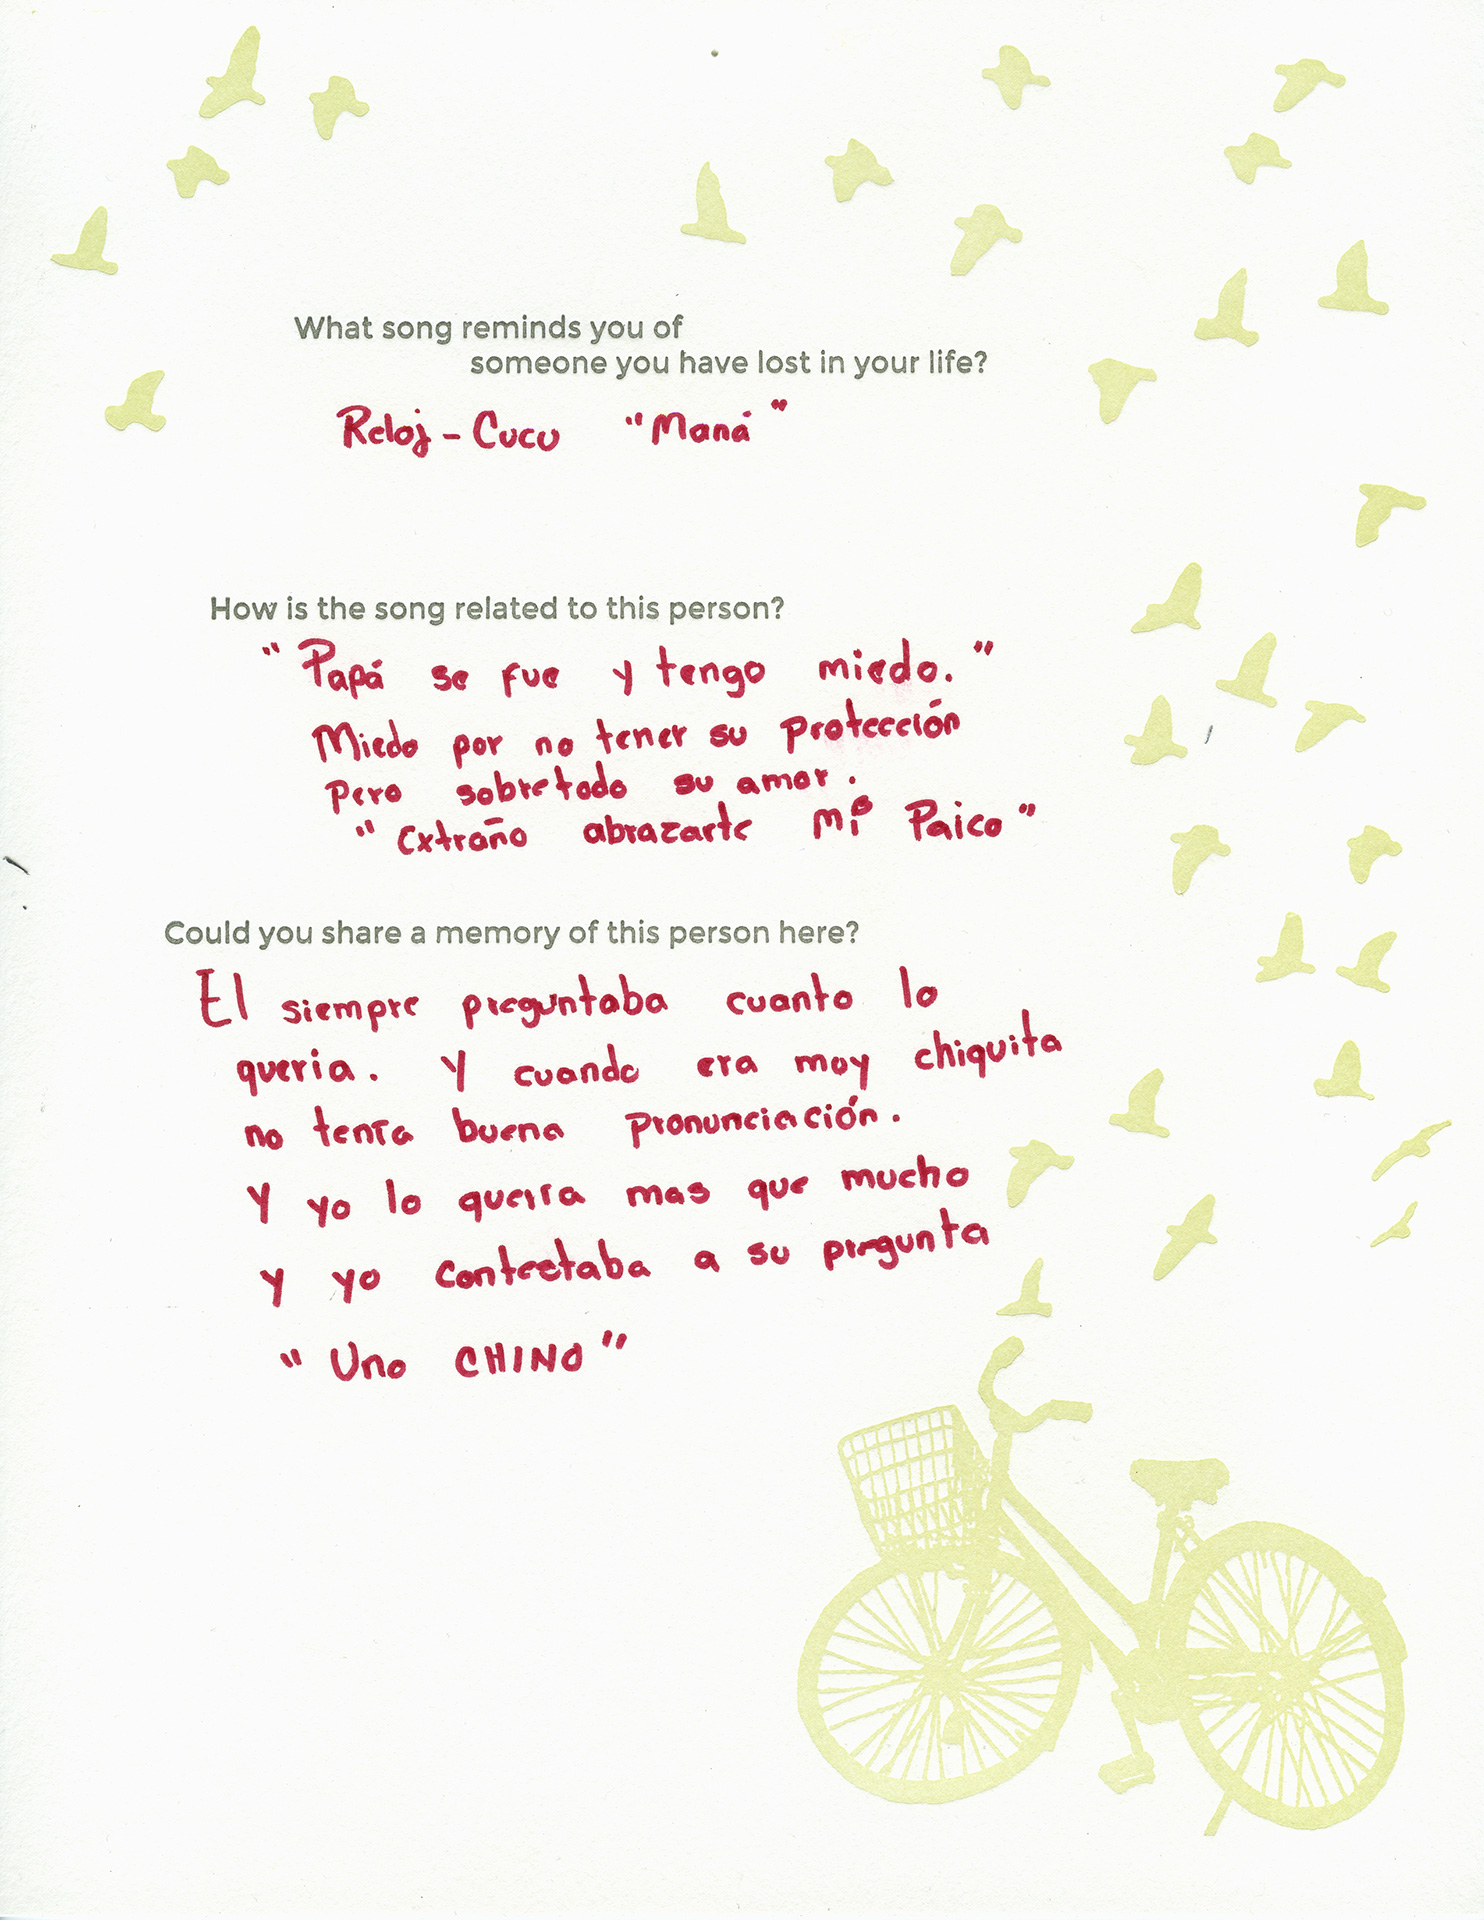 What song reminds you of
someone you have lost in your life?
Reloj - Cucu "Maná"
How is the song related to this person?
"Papá se fue y tengo miedo."
Miedo por no tener su protección
Pero sobretodo su amor.
"Extraño abrazarte mi Paico"
Could you share a memory of this person here?
El siempre preguntaba cuanto lo
queria. Y cuando era muy chiquita
no tenía buena pronunciación.
Y yo lo quería mas que mucho
y yo contestaba a su pregunta
"Uno CHINO"